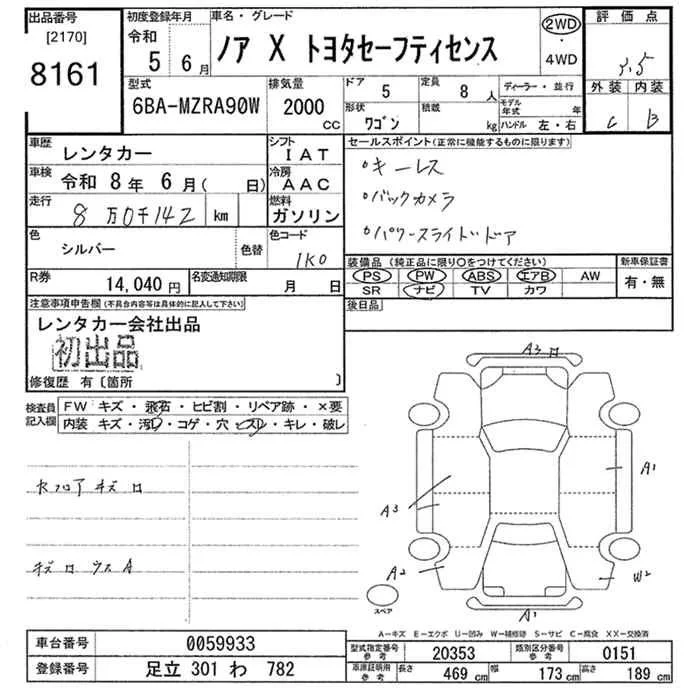 出品番号
[2170]
8161
初度登録年月
令和
5 6月
車名・グレード
ノア X トヨタセーフティセンス
2WD
・
4WD
評価点
3.5
外装 内装
C B
型式
6BA-MZRA90W
排気量
2000
CC
ドア
5
定員
8 人
ディーラー・並行
形状
ワゴン
積載
kg
モデル年式 年
ハンドル 左・右
車歴
レンタカー
シフト
IAT
車検
令和 8年 6月( 日)
冷房
AAC
走行
8万0千142 km
燃料
ガソリン
セールスポイント(正常に機能するものに限ります)
・キーレス
・バックカメラ
・パワースライドドア
色
シルバー
色替
色コード
1K0
R券
14,040円
名変通知期限
月 日
装備品 (純正品に限り○をつけてください)
PS PW ABS エアB AW
SR ナビ TV カワ
新車保証書
有・無
後日品
注意事項申告欄(不具合内容等は具体的に記入して下さい)
レンタカー会社出品
初出品
修復歴 有〔箇所 〕
検査員
記入欄
FW キズ・飛石・ヒビ割・リペア跡・×要
内装 キズ・汚れ・コゲ・穴・スレ・キレ・破レ
キズロ ウスA
A3 ロ
A1
A3
A2
W2
A1
スペア
A-キズ E-エクボ U-凹み W-補修跡 S-サビ C-腐食 XX-交換済
車台番号
0059933
登録番号
足立 301 わ 782
型式指定番号
参考
20353
類別区分番号
参考
0151
車庫証明用
参考
長さ
469 cm
幅
173 cm
高さ
189 cm